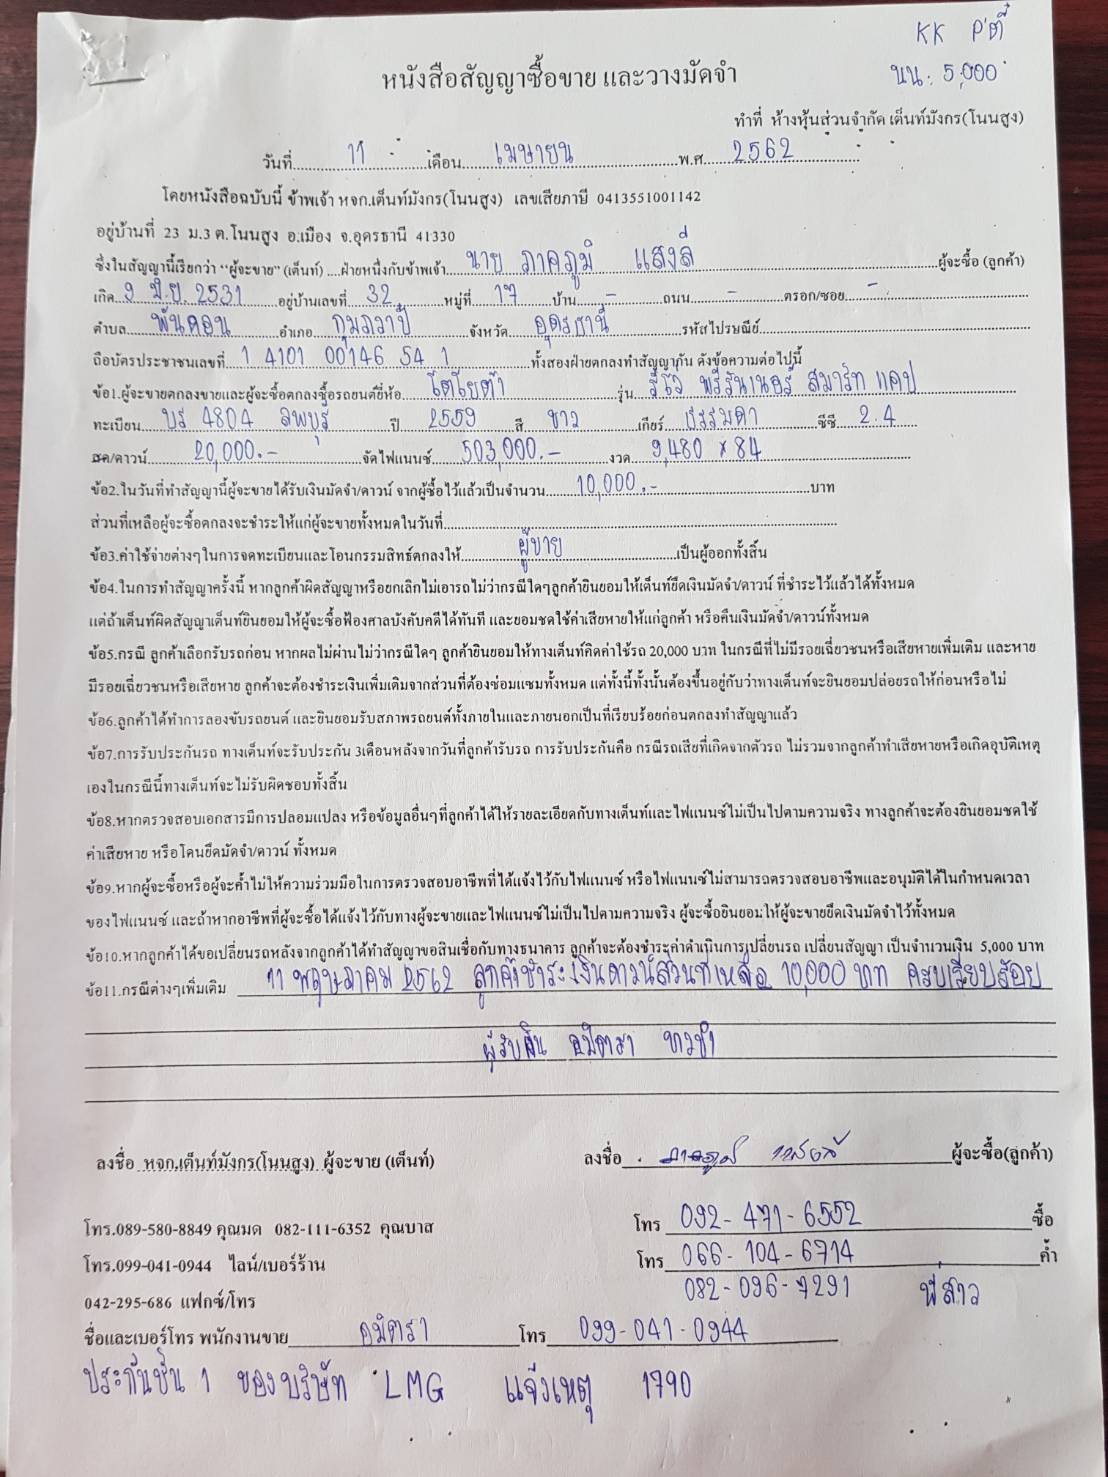 KK P'ตี๋
นน: 5,000
หนังสือสัญญาซื้อขาย และวางมัดจำ
ทำที่ ห้างหุ้นส่วนจำกัด เต็นท์มังกร(โนนสูง)
วันที่ 11 เดือน เมษายน พ.ศ 2562
โดยหนังสือฉบับนี้ ข้าพเจ้า หจก.เต็นท์มังกร(โนนสูง) เลขเสียภาษี 0413551001142
อยู่บ้านที่ 23 ม.3 ต.โนนสูง อ.เมือง จ.อุดรธานี 41330
ซึ่งในสัญญานี้เรียกว่า "ผู้จะขาย" (เต็นท์) ฝ่ายหนึ่งกับข้าพเจ้า นาย ภาคภูมิ แสงลี ผู้จะซื้อ (ลูกค้า)
เกิด 9 มิ.ย. 2531 อยู่บ้านเลขที่ 32 หมู่ที่ 17 บ้าน - ถนน - ตรอก/ซอย -
ตำบล พันดอน อำเภอ กุมภวาปี จังหวัด อุดรธานี รหัสไปรษณีย์
ถือบัตรประชาชนเลขที่ 1 4101 00146 54 1 ทั้งสองฝ่ายตกลงทำสัญญากัน ดังข้อความต่อไปนี้
ข้อ1.ผู้จะขายตกลงขายและผู้จะซื้อตกลงซื้อรถยนต์ยี่ห้อ โตโยต้า รุ่น รีโว่ พรีรันเนอร์ สมาร์ท แคป
ทะเบียน บร 4804 ลพบุรี ปี 2559 สี ขาว เกียร์ ธรรมดา ซีซี 2.4
สด/ดาวน์ 20,000.- จัดไฟแนนซ์ 503,000.- งวด 9,480 × 84
ข้อ2.ในวันที่ทำสัญญานี้ผู้จะขายได้รับเงินมัดจำ/ดาวน์ จากผู้ซื้อไว้แล้วเป็นจำนวน 10,000.- บาท
ส่วนที่เหลือผู้จะซื้อตกลงจะชำระให้แก่ผู้จะขายทั้งหมดในวันที่
ข้อ3.ค่าใช้จ่ายต่างๆในการจดทะเบียนและโอนกรรมสิทธ์ตกลงให้ ผู้ขาย เป็นผู้ออกทั้งสิ้น
ข้อ4.ในการทำสัญญาครั้งนี้ หากลูกค้าผิดสัญญาหรือยกเลิกไม่เอารถไม่ว่ากรณีใดๆลูกค้ายินยอมให้เต็นท์ยึดเงินมัดจำ/ดาวน์ ที่ชำระไว้แล้วได้ทั้งหมด
แต่ถ้าเต็นท์ผิดสัญญาเต็นท์ยินยอมให้ผู้จะซื้อฟ้องศาลบังคับคดีได้ทันที และยอมชดใช้ค่าเสียหายให้แก่ลูกค้า หรือคืนเงินมัดจำ/ดาวน์ทั้งหมด
ข้อ5.กรณี ลูกค้าเลือกรับรถก่อน หากผลไม่ผ่านไม่ว่ากรณีใดๆ ลูกค้ายินยอมให้ทางเต็นท์คิดค่าใช้รถ 20,000 บาท ในกรณีที่ไม่มีรอยเฉี่ยวชนหรือเสียหายเพิ่มเติม และหาย
มีรอยเฉี่ยวชนหรือเสียหาย ลูกค้าจะต้องชำระเงินเพิ่มเติมจากส่วนที่ต้องซ่อมแซมทั้งหมด แต่ทั้งนี้ทั้งนั้นต้องขึ้นอยู่กับว่าทางเต็นท์จะยินยอมปล่อยรถให้ก่อนหรือไม่
ข้อ6.ลูกค้าได้ทำการลองขับรถยนต์ และยินยอมรับสภาพรถยนต์ทั้งภายในและภายนอกเป็นที่เรียบร้อยก่อนตกลงทำสัญญาแล้ว
ข้อ7.การรับประกันรถ ทางเต็นท์จะรับประกัน 3เดือนหลังจากวันที่ลูกค้ารับรถ การรับประกันคือ กรณีรถเสียที่เกิดจากตัวรถ ไม่รวมจากลูกค้าทำเสียหายหรือเกิดอุบัติเหตุ
เองในกรณีนี้ทางเต็นท์จะไม่รับผิดชอบทั้งสิ้น
ข้อ8.หากตรวจสอบเอกสารมีการปลอมแปลง หรือข้อมูลอื่นๆที่ลูกค้าได้ให้รายละเอียดกับทางเต็นท์และไฟแนนซ์ไม่เป็นไปตามความจริง ทางลูกค้าจะต้องยินยอมชดใช้
ค่าเสียหาย หรือโดนยึดมัดจำ/ดาวน์ ทั้งหมด
ข้อ9.หากผู้จะซื้อหรือผู้จะค้ำไม่ให้ความร่วมมือในการตรวจสอบอาชีพที่ได้แจ้งไว้กับไฟแนนซ์ หรือไฟแนนซ์ไม่สามารถตรวจสอบอาชีพและอนุมัติได้ในกำหนดเวลา
ของไฟแนนซ์ และถ้าหากอาชีพที่ผู้จะซื้อได้แจ้งไว้กับทางผู้จะขายและไฟแนนซ์ไม่เป็นไปตามความจริง ผู้จะซื้อยินยอมให้ผู้จะขายยึดเงินมัดจำไว้ทั้งหมด
ข้อ10.หากลูกค้าได้ขอเปลี่ยนรถหลังจากลูกค้าได้ทำสัญญาขอสินเชื่อกับทางธนาคาร ลูกค้าจะต้องชำระค่าดำเนินการเปลี่ยนรถ เปลี่ยนสัญญา เป็นจำนวนเงิน 5,000 บาท
ข้อ11.กรณีต่างๆเพิ่มเติม 11 พฤษภาคม 2562 ลูกค้าชำระเงินดาวน์ส่วนที่เหลือ 10,000 บาท ครบเรียบร้อย
ผู้รับเงิน อมิตรา
ลงชื่อ หจก.เต็นท์มังกร(โนนสูง) ผู้จะขาย (เต็นท์) ลงชื่อ ภาคภูมิ แสงลี ผู้จะซื้อ(ลูกค้า)
โทร.089-580-8849 คุณมด 082-111-6352 คุณบาส โทร 092-471-6552 ซื้อ
โทร.099-041-0944 ไลน์/เบอร์ร้าน โทร 066-104-6714 ค้ำ
082-096-7291 พี่สาว
042-295-686 แฟกซ์/โทร
ชื่อและเบอร์โทร พนักงานขาย อมิตรา โทร 099-041-0944
ประกันชั้น 1 ของบริษัท LMG แจ้งเหตุ 1790